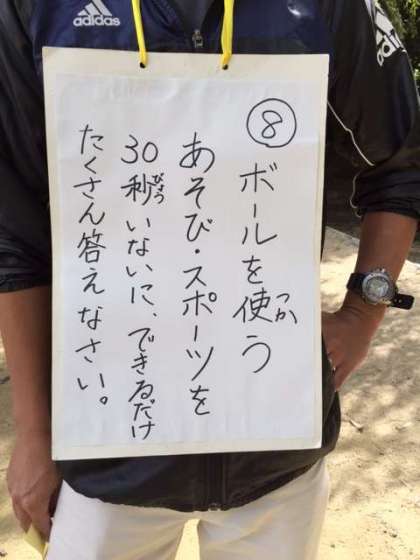 adidas
⑧ ボールを使う
つか
あそび・スポーツを
30秒いないに、できるだけ
びょう
たくさん答えなさい。